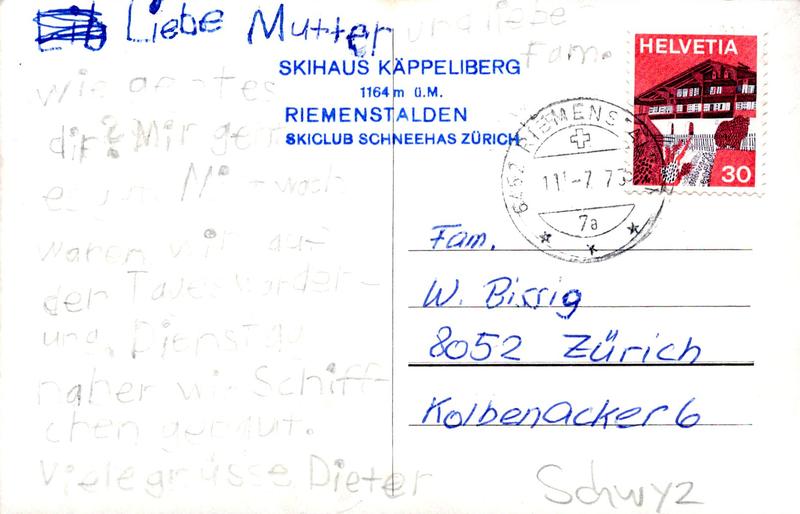 Liebe Mutter und liebe
Fam.
wie geht es
dir? Mir geht
es gut. Mittwoch
waren wir auf
der Tageswander-
ung. Dienstag
haben wir Schiff-
chen gebaut.
Viele grüsse Dieter
SKIHAUS KÄPPELIBERG
1164 m ü.M.
RIEMENSTALDEN
SKICLUB SCHNEEHAS ZÜRICH
HELVETIA
30
6452 RIEMENSTALDEN
11-7.73
7a
Fam.
W. Bissig
8052 Zürich
Kolbenacker 6
Schwyz